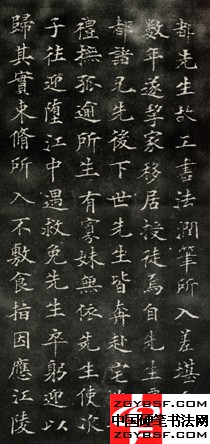 都先生故工書法潤筆所入差堪
數年遂挈家移居授徒為自先生
都諸兄先後下世先生皆奔赴
禮撫孤逾所生有寡妹無依先生使次
子往迎墮江中遇救免先生卒躬迎以
歸其實束脩所入不敷食指因應江陵
ZGYBSF.COM
中国硬笔书法网
ZGYBSF.COM